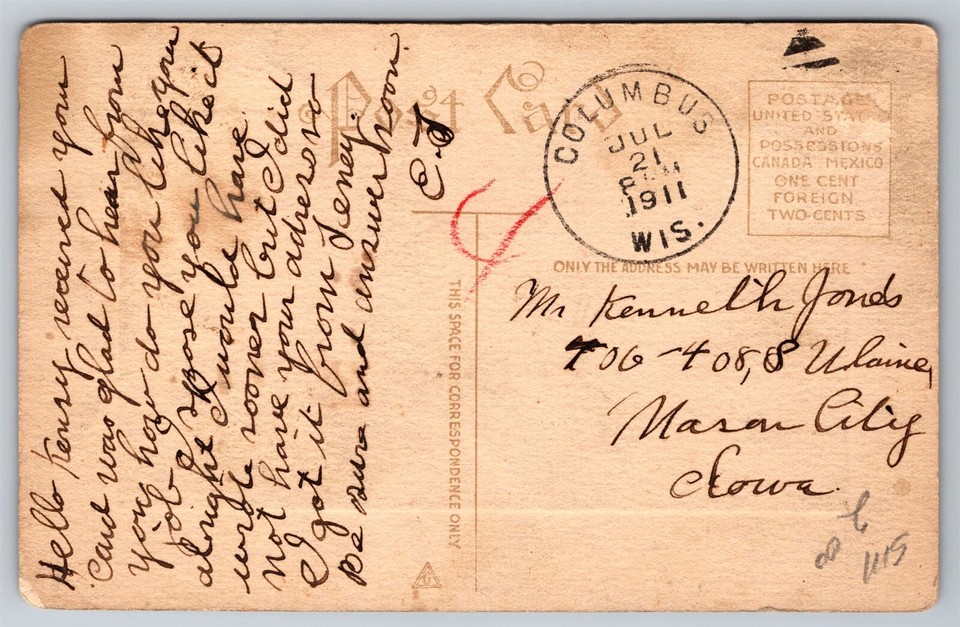 Hello Kenny received your
card was glad to hear from
you how do you like you
job I spose you like it
alright I would have
wrote sooner but I did
not have your address so
I got it from
Be sure and answer soon.
C. J
Post Card
COLUMBUS
JUL
21
1911
WIS.
POSTAGE
UNITED STATES
AND
POSSESSIONS
CANADA MEXICO
ONE CENT
FOREIGN
TWO CENTS
ONLY THE ADDRESS MAY BE WRITTEN HERE
THIS SPACE FOR CORRESPONDENCE ONLY
Mr Kenneth Jonds
406-408, S
Mason City
Iowa.